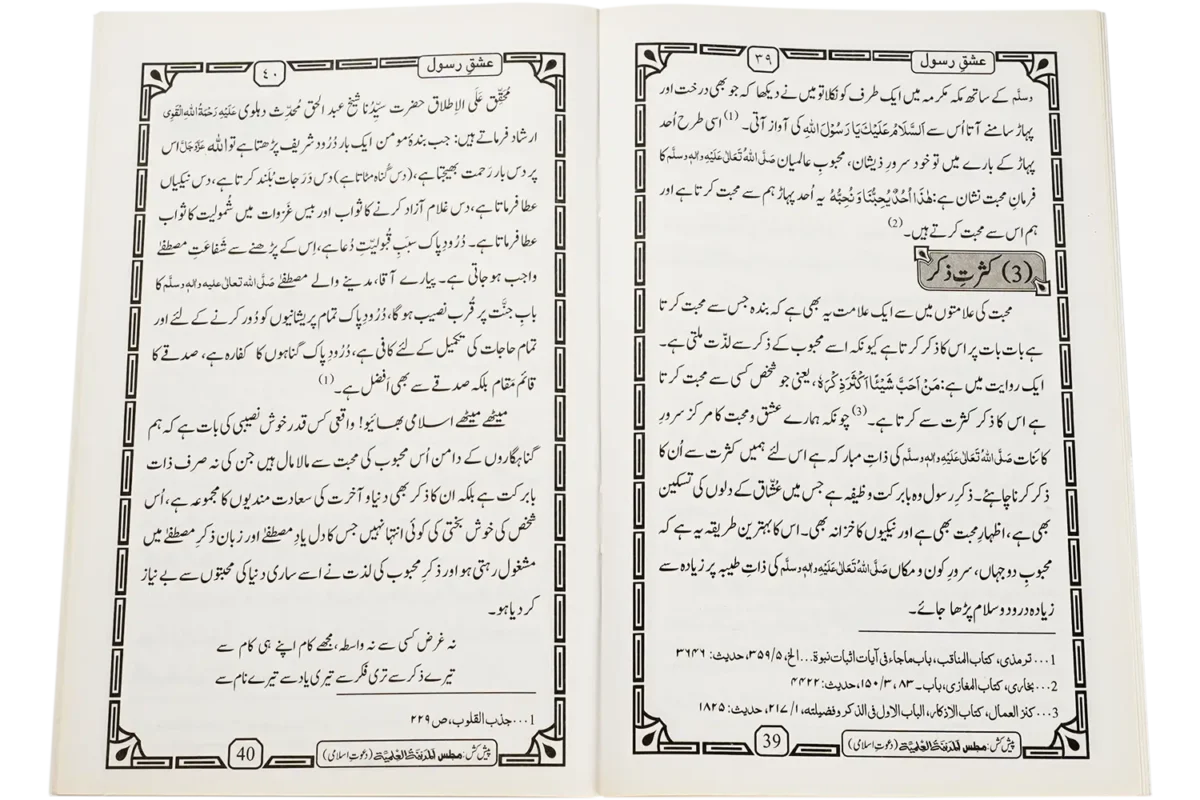 عشقِ رسول
۳۹
وسلَّم کے ساتھ مکہ مکرمہ میں ایک طرف کو نکلا تو میں نے دیکھا کہ جو بھی درخت اور
پہاڑ سامنے آتا اُس سے اَلسَّلَامُ عَلَیْكَ یَا رَسُوْلَ اللهِ کی آواز آتی۔ (1) اسی طرح اُحد
پہاڑ کے بارے میں تو خود سرورِ ذیشان، محبوبِ عالمیان صَلَّی اللهُ تَعَالٰی عَلَیْهِ واٰلِهٖ وسلَّم کا
فرمانِ محبت نشان ہے: هٰذَا اُحُدٌ یُّحِبُّنَا وَ نُحِبُّهٗ یہ اُحد پہاڑ ہم سے محبت کرتا ہے اور
ہم اس سے محبت کرتے ہیں۔ (2)
(3) کثرتِ ذکر
محبت کی علامتوں میں سے ایک علامت یہ بھی ہے کہ بندہ جس سے محبت کرتا
ہے بات بات پر اس کا ذکر کرتا ہے کیونکہ اسے محبوب کے ذکر سے لذّت ملتی ہے۔
ایک روایت میں ہے: مَنْ اَحَبَّ شَیْئًا اَکْثَرَ ذِکْرَهٗ، یعنی جو شخص کسی سے محبت کرتا
ہے اس کا ذکر کثرت سے کرتا ہے۔ (3) چونکہ ہمارے عشق و محبت کا مرکز سرورِ
کائنات صَلَّی اللهُ تَعَالٰی عَلَیْهِ واٰلِهٖ وسلَّم کی ذاتِ مبارکہ ہے اس لئے ہمیں کثرت سے اُن کا
ذکر کرنا چاہئے۔ ذکرِ رسول وہ بابرکت وظیفہ ہے جس میں عشّاق کے دلوں کی تسکین
بھی ہے، اظہارِ محبت بھی ہے اور نیکیوں کا خزانہ بھی۔ اس کا بہترین طریقہ یہ ہے کہ
محبوبِ دو جہاں، سرورِ کون و مکاں صَلَّی اللهُ تَعَالٰی عَلَیْهِ واٰلِهٖ وسلَّم کی ذاتِ طیبہ پر زیادہ سے
زیادہ درود و سلام پڑھا جائے۔
1... ترمذی، کتاب المناقب، باب ماجاء فی آیات اثبات نبوة... الخ، ۳۵۹/۵، حدیث: ۳۶۴۶
2... بخاری، کتاب المغازی، باب۔۸۳، ۱۵۰/۳، حدیث: ۴۴۲۲
3... کنز العمال، کتاب الاذکار، الباب الاول فی الذکر و فضیلتہ، ۲۱۷/۱، حدیث: ۱۸۲۵
پیش کش: مجلس المدینة العلمیة (دعوتِ اسلامی)
39
عشقِ رسول
٤٠
مُحَقِّق عَلَی الْاِطلاق حضرت سیِّدُنا شیخ عبد الحق مُحَدِّث دہلوی عَلَیْهِ رَحْمَةُ اللهِ الْقَوِی
ارشاد فرماتے ہیں: جب بندۂ مومن ایک بار دُرُود شریف پڑھتا ہے تو الله عَزَّوَجَلَّ اس
پر دس بار رَحمت بھیجتا ہے، (دس گناہ مٹاتا ہے) دس دَرَجات بُلند کرتا ہے، دس نیکیاں
عطا فرماتا ہے، دس غلام آزاد کرنے کا ثواب اور بیس غَزوات میں شُمولیت کا ثواب
عطا فرماتا ہے۔ دُرُودِ پاک سببِ قُبولیّتِ دُعا ہے، اِس کے پڑھنے سے شَفاعَتِ مصطفےٰ
واجب ہو جاتی ہے۔ پیارے آقا، مدینے والے مصطفےٰ صَلَّی الله تعالٰی علیه واٰلهٖ وسلَّم کا
بابِ جنَّت پر قُرب نصیب ہو گا، دُرُودِ پاک تمام پریشانیوں کو دُور کرنے کے لئے اور
تمام حاجات کی تکمیل کے لئے کافی ہے، دُرُودِ پاک گناہوں کا کفارہ ہے، صدقے کا
قائم مَقام بلکہ صدقے سے بھی اَفضل ہے۔ (1)
میٹھے میٹھے اسلامی بھائیو! واقعی کس قدر خوش نصیبی کی بات ہے کہ ہم
گناہگاروں کے دامن اُس محبوب کی محبت سے مالا مال ہیں جن کی نہ صرف ذات
بابرکت ہے بلکہ ان کا ذکر بھی دنیا و آخرت کی سعادت مندیوں کا مجموعہ ہے، اُس
شخص کی خوش بختی کی کوئی انتہا نہیں جس کا دل یادِ مصطفےٰ اور زبان ذکرِ مصطفےٰ میں
مشغول رہتی ہو اور ذکرِ محبوب کی لذت نے اسے ساری دنیا کی محبتوں سے بے نیاز
کر دیا ہو۔
نہ غرض کسی سے نہ واسطہ، مجھے کام اپنے ہی کام سے
تیرے ذکر سے تری فکر سے تیری یاد سے تیرے نام سے
1... جذب القلوب، ص ۲۲۹
پیش کش: مجلس المدینة العلمیة (دعوتِ اسلامی)
40